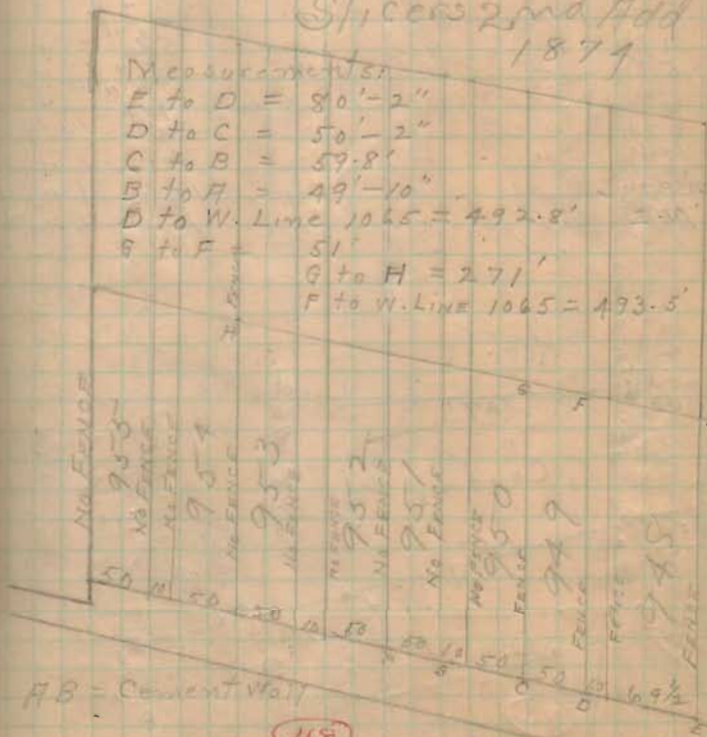 Slicers 2nd Add
1874
Measurements:
E to D = 80'-2"
D to C = 50'-2"
C to B = 59.8'
B to A = 49'-10"
D to W. Line 1065 = 492.8'
G to F = 51'
G to H = 271'
F to W. LINE 1065 = 493.5'
H Fence
G F
NO FENCE 955 NO FENCE NO FENCE 954 NO FENCE 953 NO FENCE NO FENCE 952 NO FENCE 951 NO FENCE NO FENCE 950 FENCE 949 FENCE FENCE 948 FENCE
50 10 50 50 10 50 50 10 50 50 10 69½
A B C D E
AB = Cement Wall